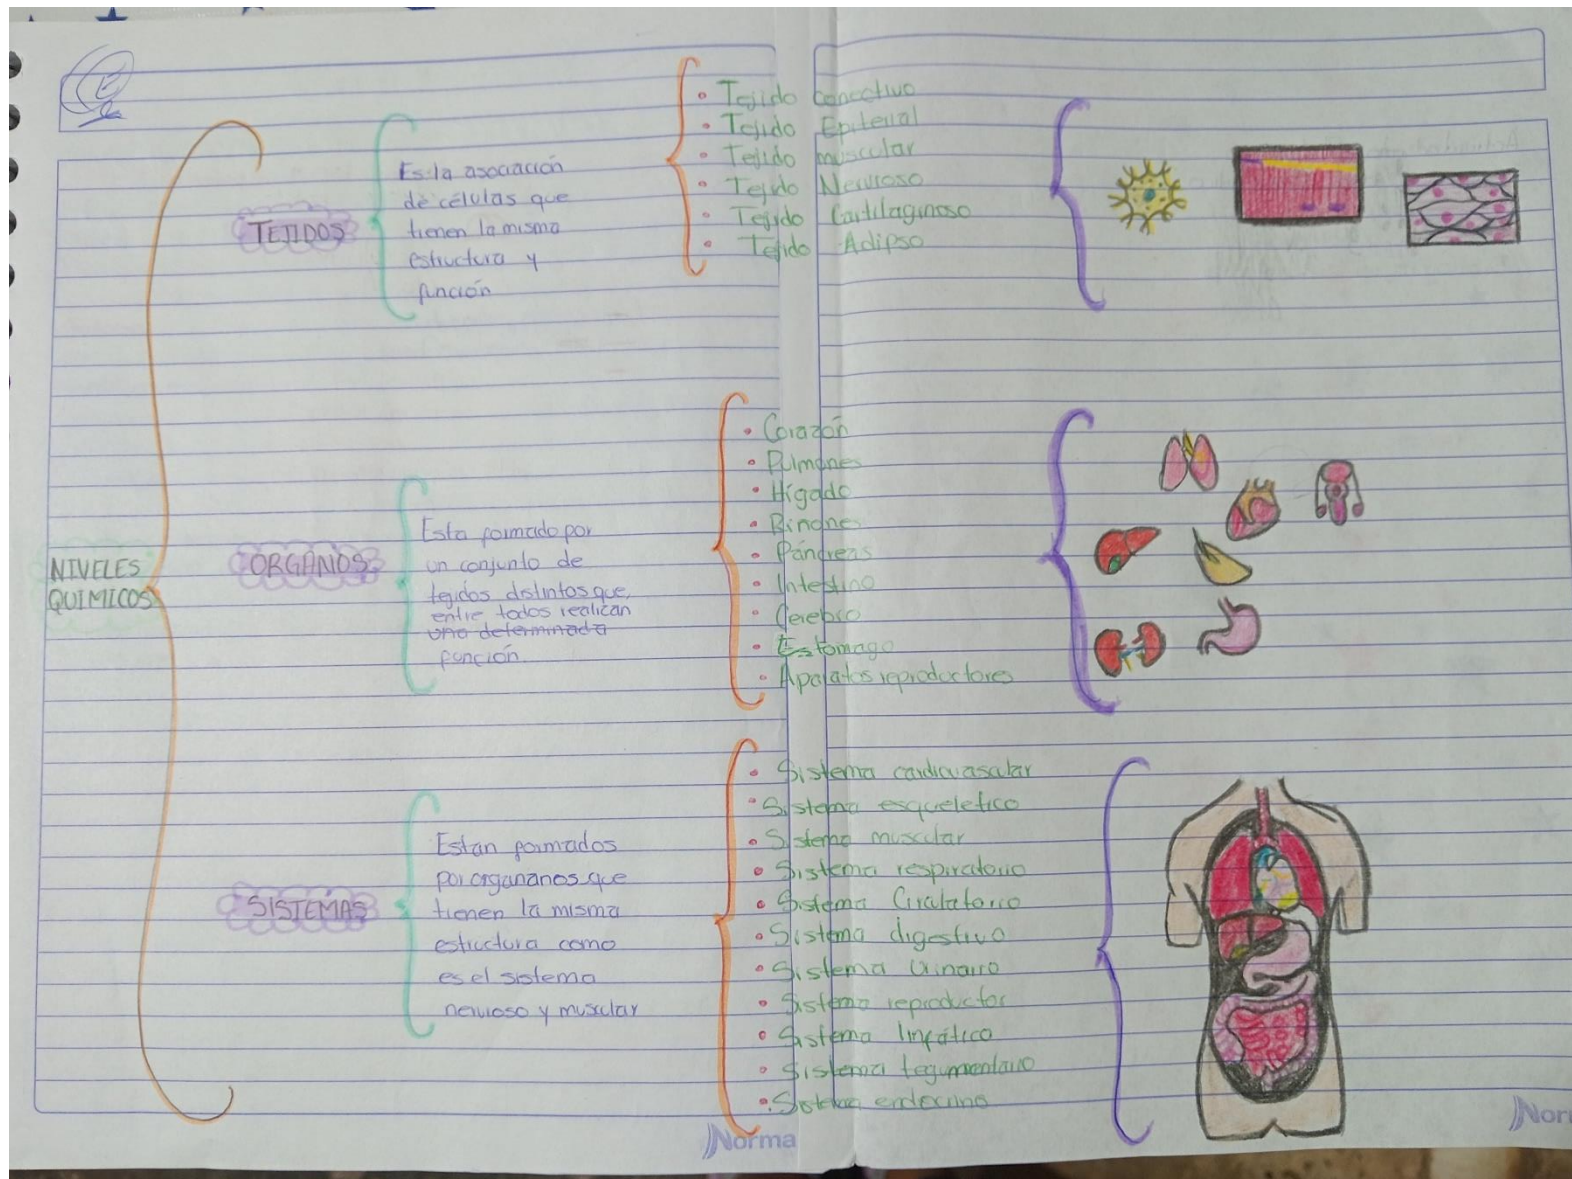 NIVELES
QUIMICOS
TEJIDOS
Es la asociación
de células que
tienen la misma
estructura y
función
• Tejido conectivo
• Tejido Epiterial
• Tejido muscular
• Tejido Nervioso
• Tejido Cartilaginoso
• Tejido Adipso
ORGANOS
Esta formado por
un conjunto de
tejidos distintos que,
entre todos realican
una determinada
función
• Corazón
• Pulmones
• Hígado
• Rinones
• Páncreas
• Intestino
• Cerebro
• Estomago
• Aparatos reproductores
SISTEMAS
Estan formados
por organanos que
tienen la misma
estructura como
es el sistema
nervioso y muscular
• Sistema cardiovascular
• Sistema esqueletico
• Sistema muscular
• Sistema respiratorio
• Sistema Circulatorio
• Sistema digestivo
• Sistema Urinario
• Sistema reproductor
• Sistema linfático
• Sistema tegumentario
• Sistema endocrino
Norma
Nor